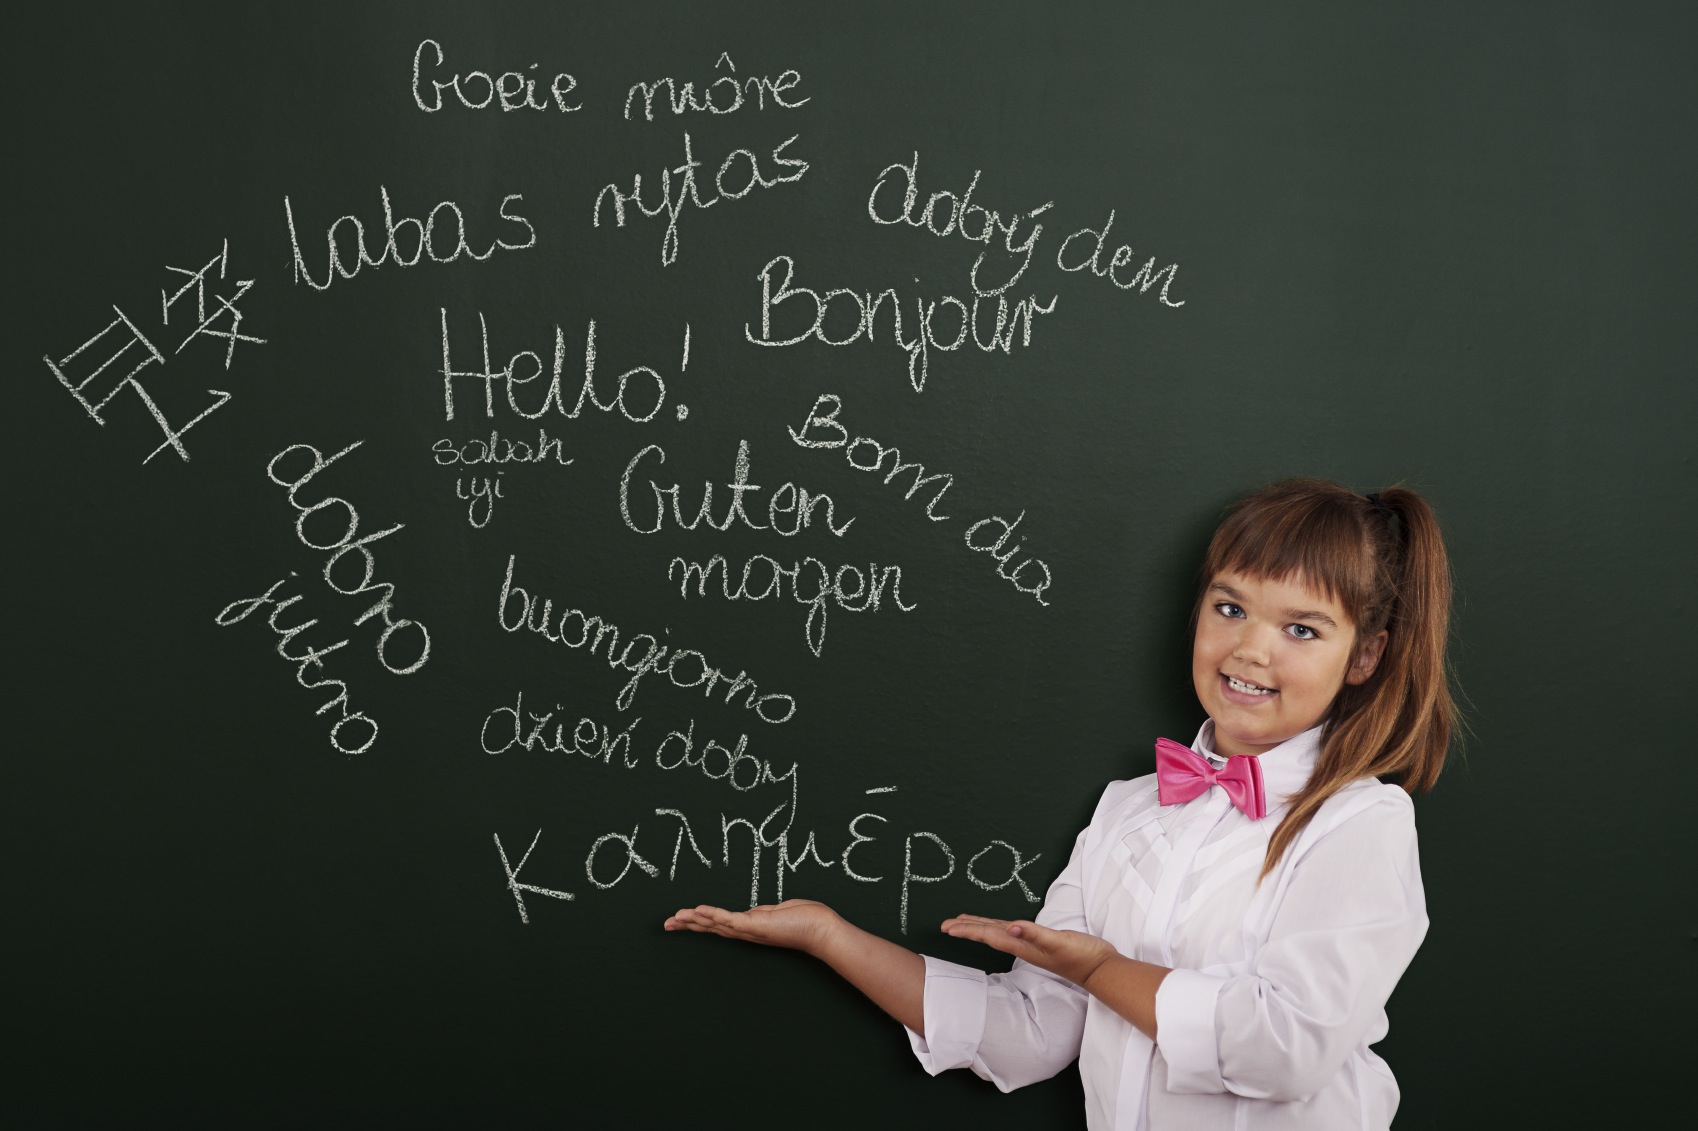 Goeie môre
labas rytas
dobrý den
早安
Bonjour
Hello!
sabah
iyi
Bom dia
Guten
morgen
dobro
jutro
buongiorno
dzień doby
Καλημέρα